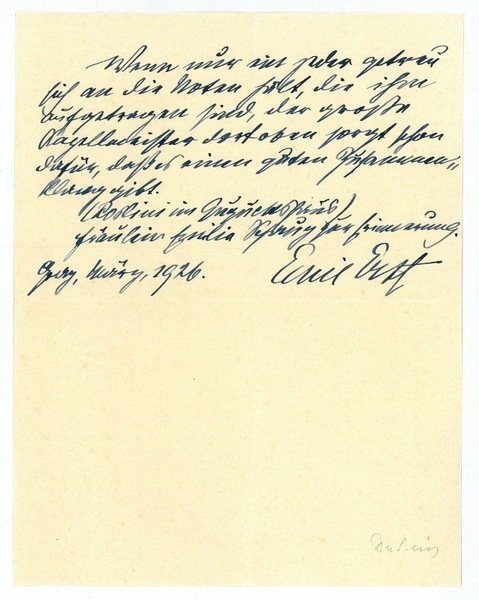 Wenn nur ein jeder getreu
sich an die Noten hält, die ihm
aufgetragen sind, der große
Kapellmeister dort oben sorgt schon
dafür, daß es einen guten Zusammen„
klang gibt.
(Rossini im
Fräulein Emilie zur Erinnerung.
Graz, März, 1926.
Emil Ertl